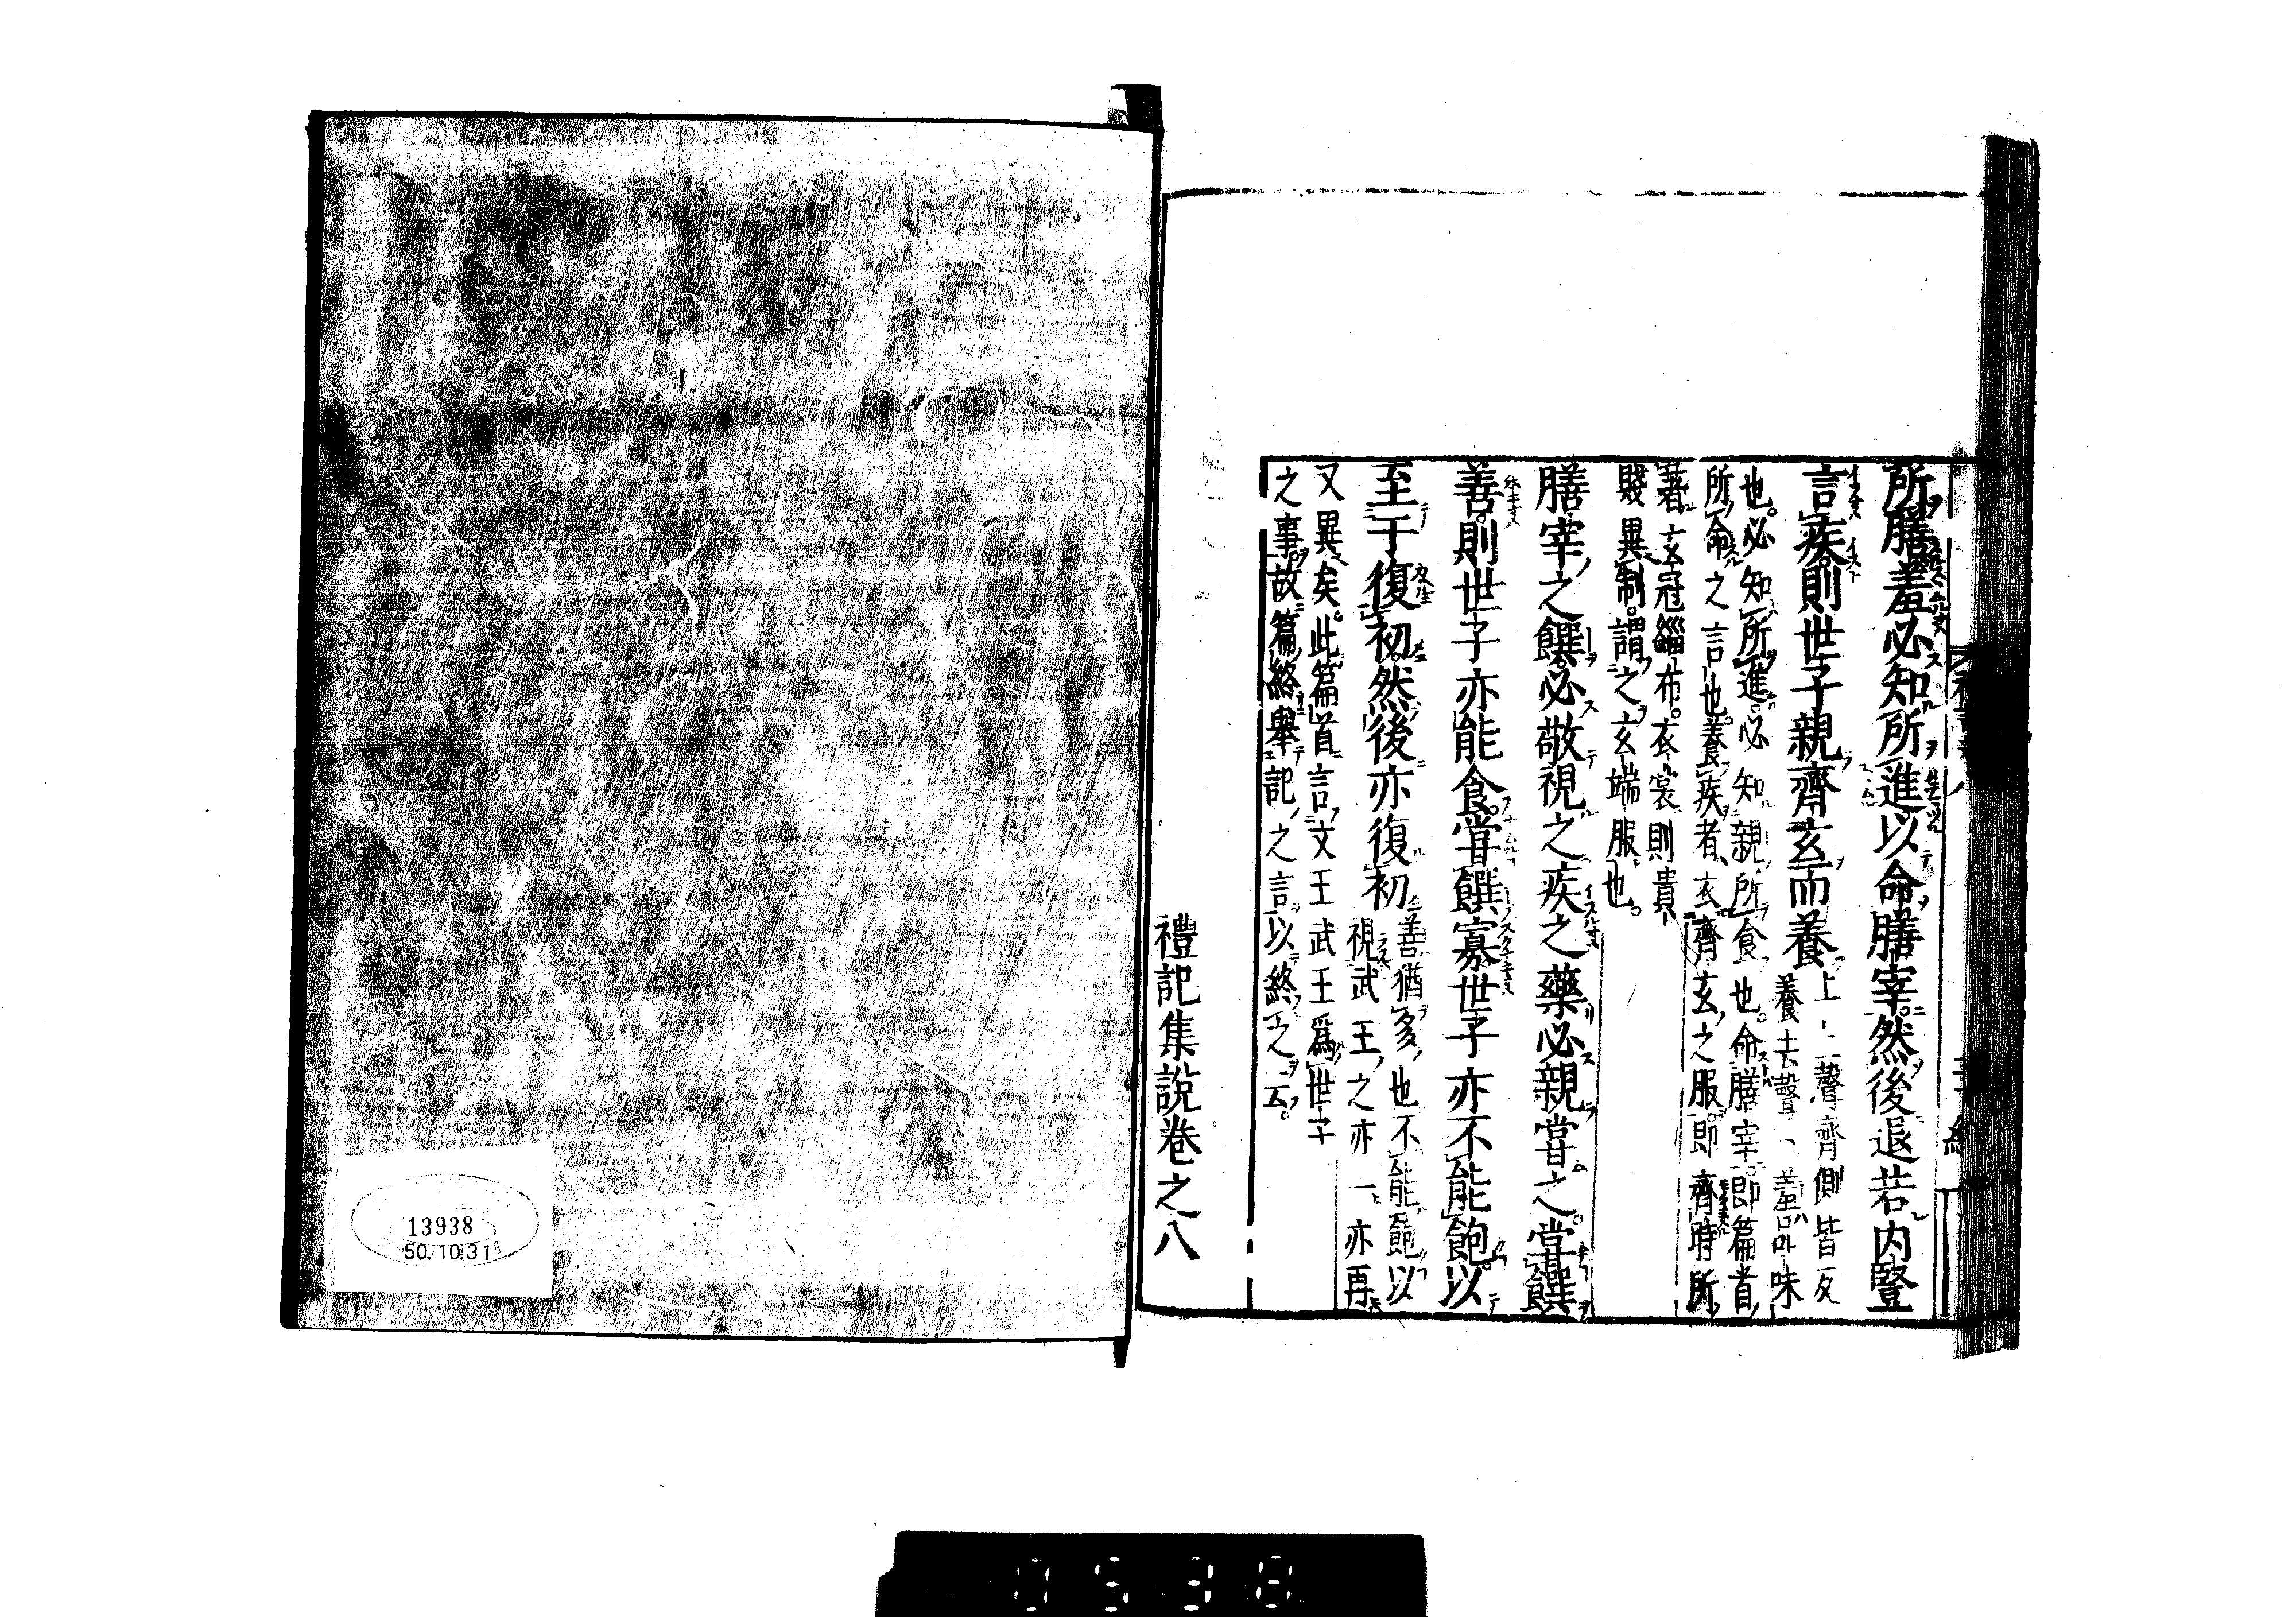 所膳羞必知所進以命膳宰然後退若内豎
言疾則世子親齊玄而養
上上聲齊側皆反
養去聲 羞品味
也必知所進必知親所食也命膳宰即篇首
所命之言也養疾者衣齊玄之服即齊時所
著玄冠緇布衣裳則貴
賤異制謂之玄端服也
膳宰之饌必敬視之疾之藥必親嘗之嘗饌
善則世子亦能食嘗饌寡世子亦不能飽以
至于復初然後亦復初
善猶多也不能飽以
視武王之亦一亦再
又異矣此篇首言文王武王爲世子
之事故篇終舉記之言以終之云
禮記集說卷之八
13938
50.10.31
0538